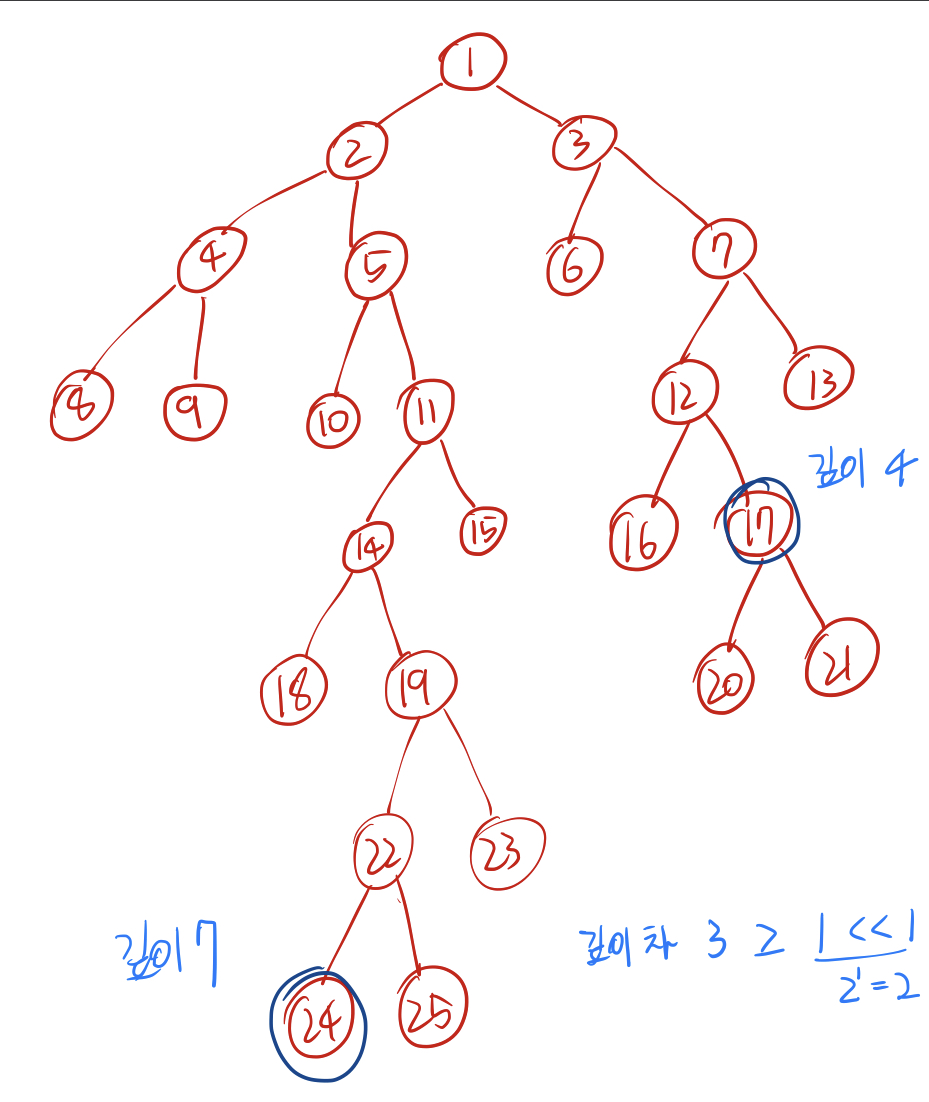 1
2 3
4 5 6 7
8 9 10 11 12 13
깊이 4
14 15 16 17
18 19 20 21
22 23
깊이 7
깊이 차 3 ≥ 1 << 1
2¹ = 2
24 25